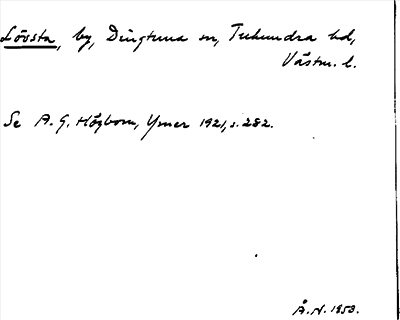 Lövsta, by, Dingtuna sn, Tuhundra hd,
Västm. l.
Se A. G. Högbom, Ymer 1921, s. 282.
Å. N. 1953.